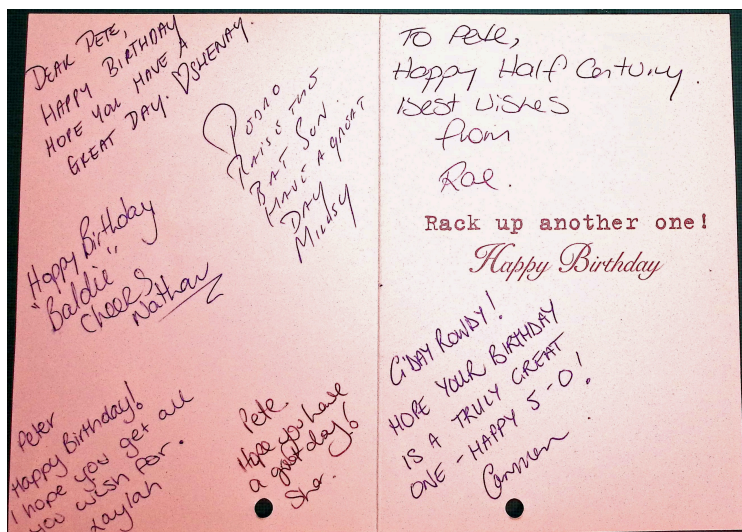 DEAR PETE,
HAPPY BIRTHDAY
HOPE YOU HAVE A
GREAT DAY. ♡SHENAY.
PEDRO
RAISE THE
BAT SON.
HAVE A GREAT
DAY
Happy Birthday
"Baldie"
Cheers
Nathan
Peter
Happy Birthday!
I hope you get all
you wish for.
Kaylah
Pete
Hope you have
a great day!
Sha.
To Pete,
Happy Half Century.
Best Wishes
from
Rae.
Rack up another one!
Happy Birthday
G'DAY ROWDY!
HOPE YOUR BIRTHDAY
IS A TRULY GREAT
ONE - HAPPY 5-0!
Carmen